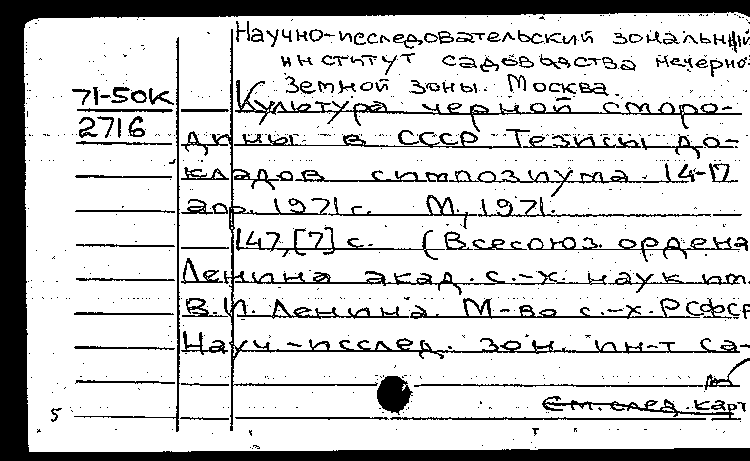 Научно-исследовательский зональный
институт садоводства нечерно-
земной зоны. Москва.
71-50к
Культура черной сморо-
2716
дины в СССР Тезисы до-
кладов симпозиума. 14-17
апр. 1971 г. М., 1971.
147,[7] с. (Всесоюз. ордена
Ленина акад. с.-х. наук им.
В.И. Ленина. М-во с.-х. РСФСР
Науч-исслед. зон. ин-т са-
См. след. карт
5